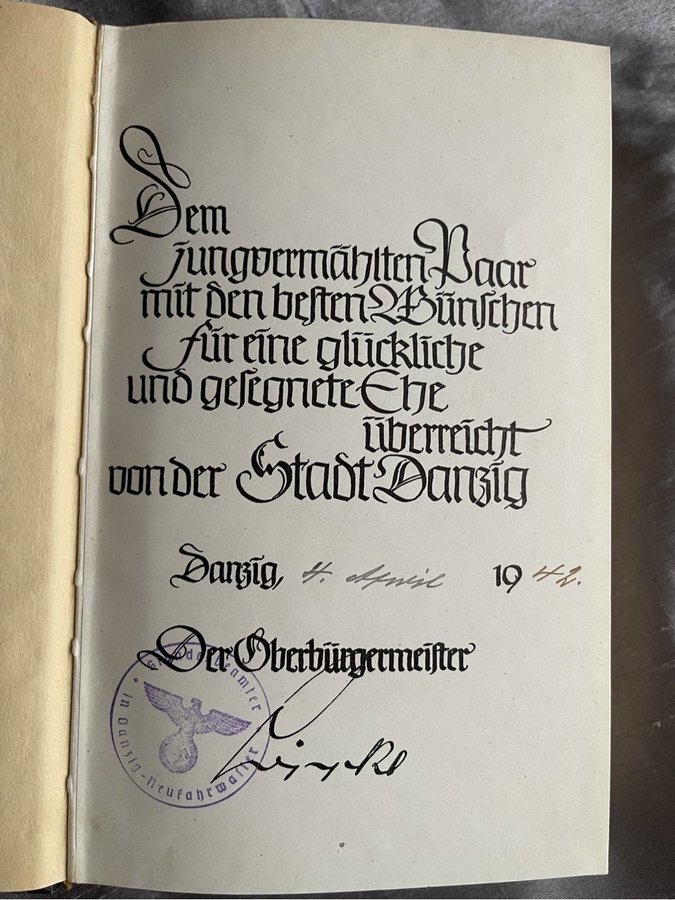 Dem
jungvermählten Paar
mit den besten Wünschen
für eine glückliche
und gesegnete Ehe
überreicht
von der Stadt Danzig
Danzig, 4. April 1942.
Der Oberbürgermeister
Standesbeamter
in Danzig-Neufahrwasser